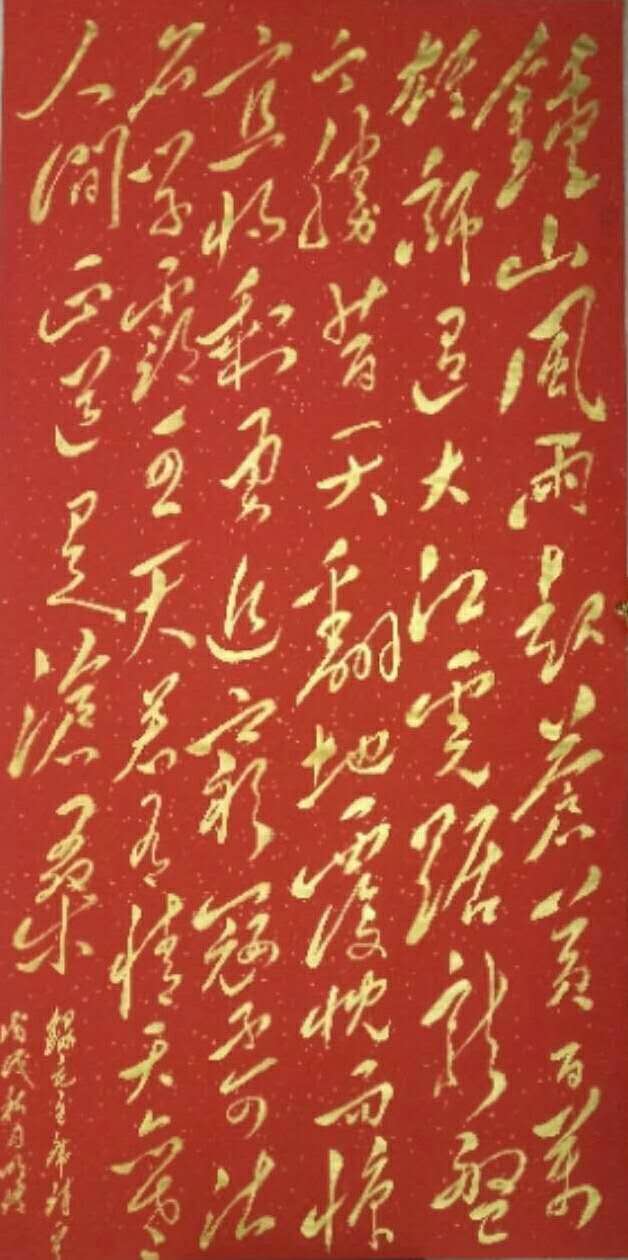 鐘山風雨起蒼黃百萬
雄師過大江虎踞龍盤
今勝昔天翻地覆慨而慷
宜將剩勇追窮寇不可沽
名學霸王天若有情天亦老
人間正道是滄桑
録毛主席詩
戌秋月